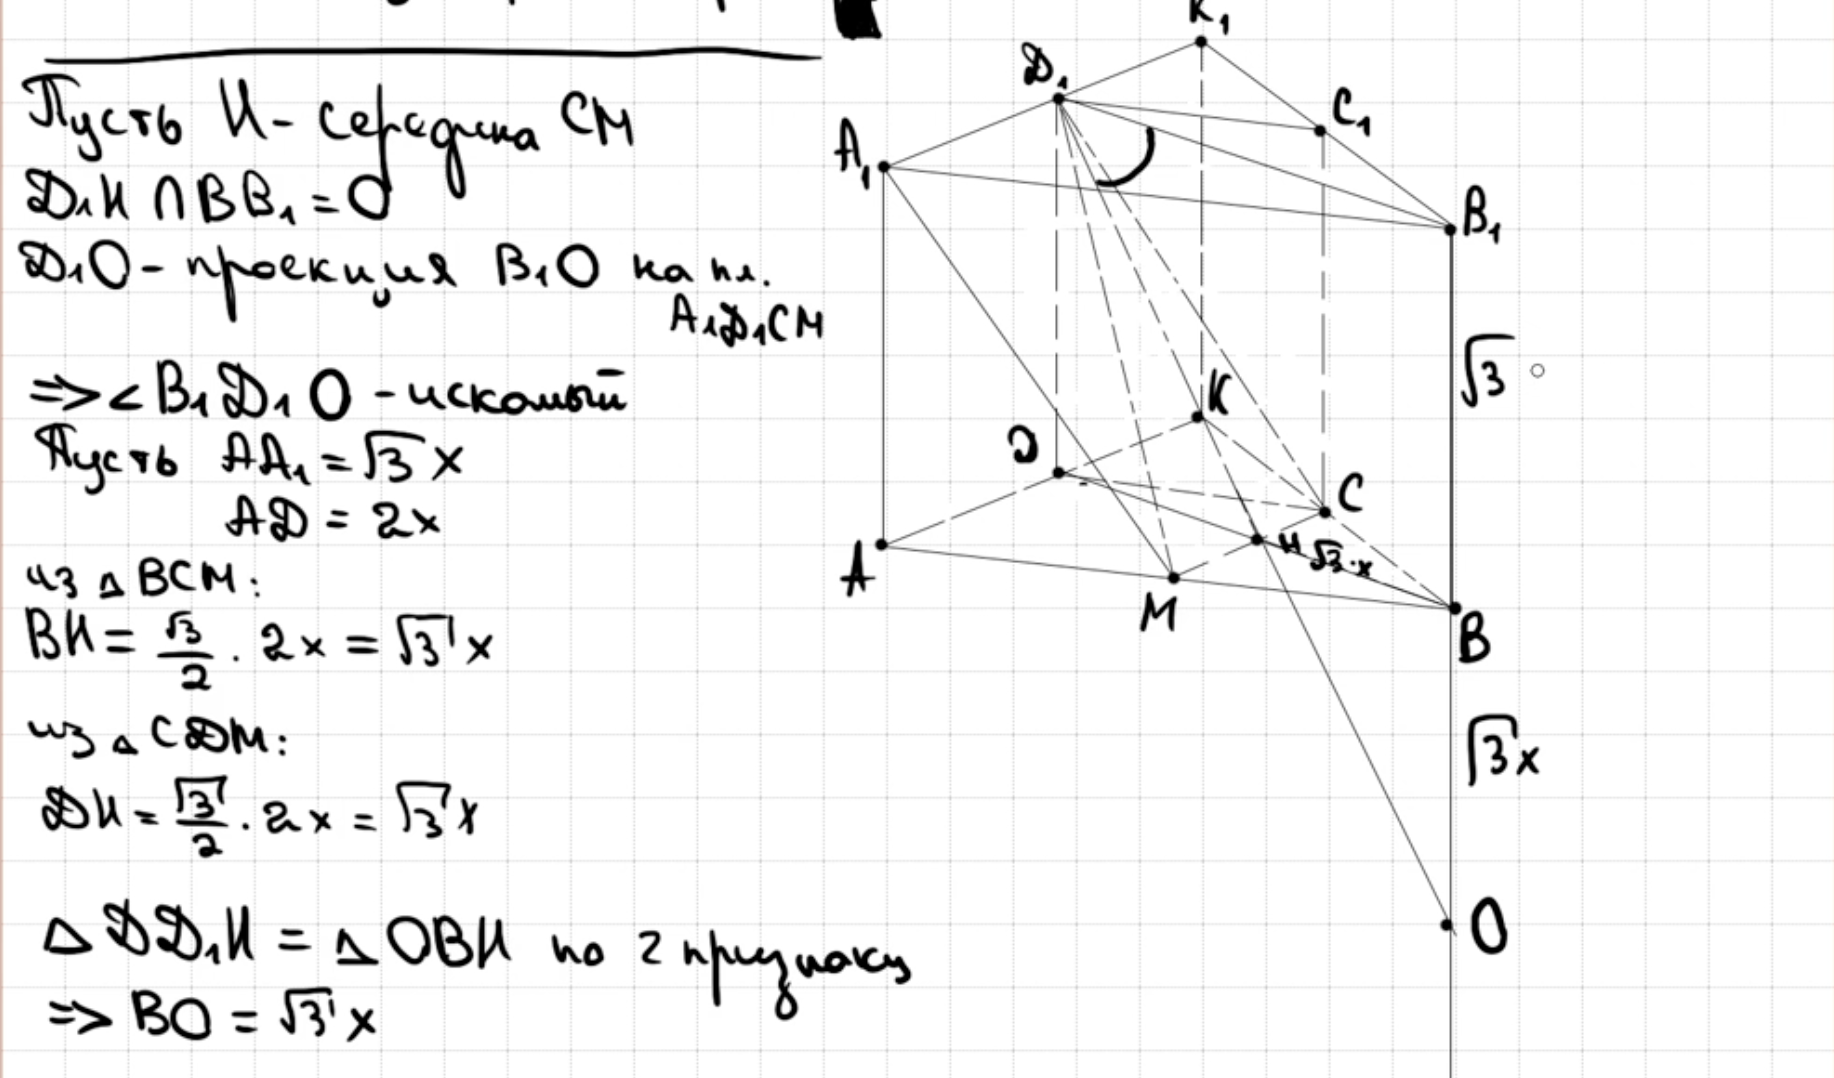 Пусть H - середина CM
D₁H ∩ BB₁ = O
D₁O - проекция B₁O на пл.
A₁D₁CM
=> < B₁D₁O - искомый
Пусть AA₁ = √3 x
AD = 2x
из △ BCM:
BH = √3/2 · 2x = √3 x
из △ CDM:
DH = √3/2 · 2x = √3 x
△ DD₁H = △ OBH по 2 признаку
=> BO = √3 x
K₁
D₁
C₁
A₁
B₁
√3
K
D
C
A
H √3·x
M
B
√3x
O